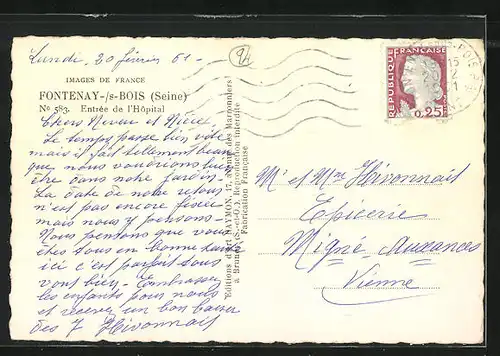 Lundi 20 février 61 -
IMAGES DE FRANCE
FONTENAY-/s-BOIS (Seine)
No 583. Entrée de l'Hôpital
Chers Neveu et Nièce
Le temps passe bien vite
mais il fait tellement beau
que nous voudrions bien
être dans notre jardin -
La date de notre retour
n'est pas encore fixée
mais nous y pensons -
Nous pensons que vous
êtes tous en bonne santé
ici c'est parfait tous
vont bien - Embrassez
les enfants pour nous
et recevez un bon baiser
des 7 Hivonnait
Editions d'art RAYMON, 17, avenue des Marronniers
à Brunoy (S.-et-O.). Reproduction interdite
Fabrication Française
REPUBLIQUE FRANÇAISE
0,25
15
M. et Mme Hivonnait
Epicerie
Migné-Auxances
Vienne